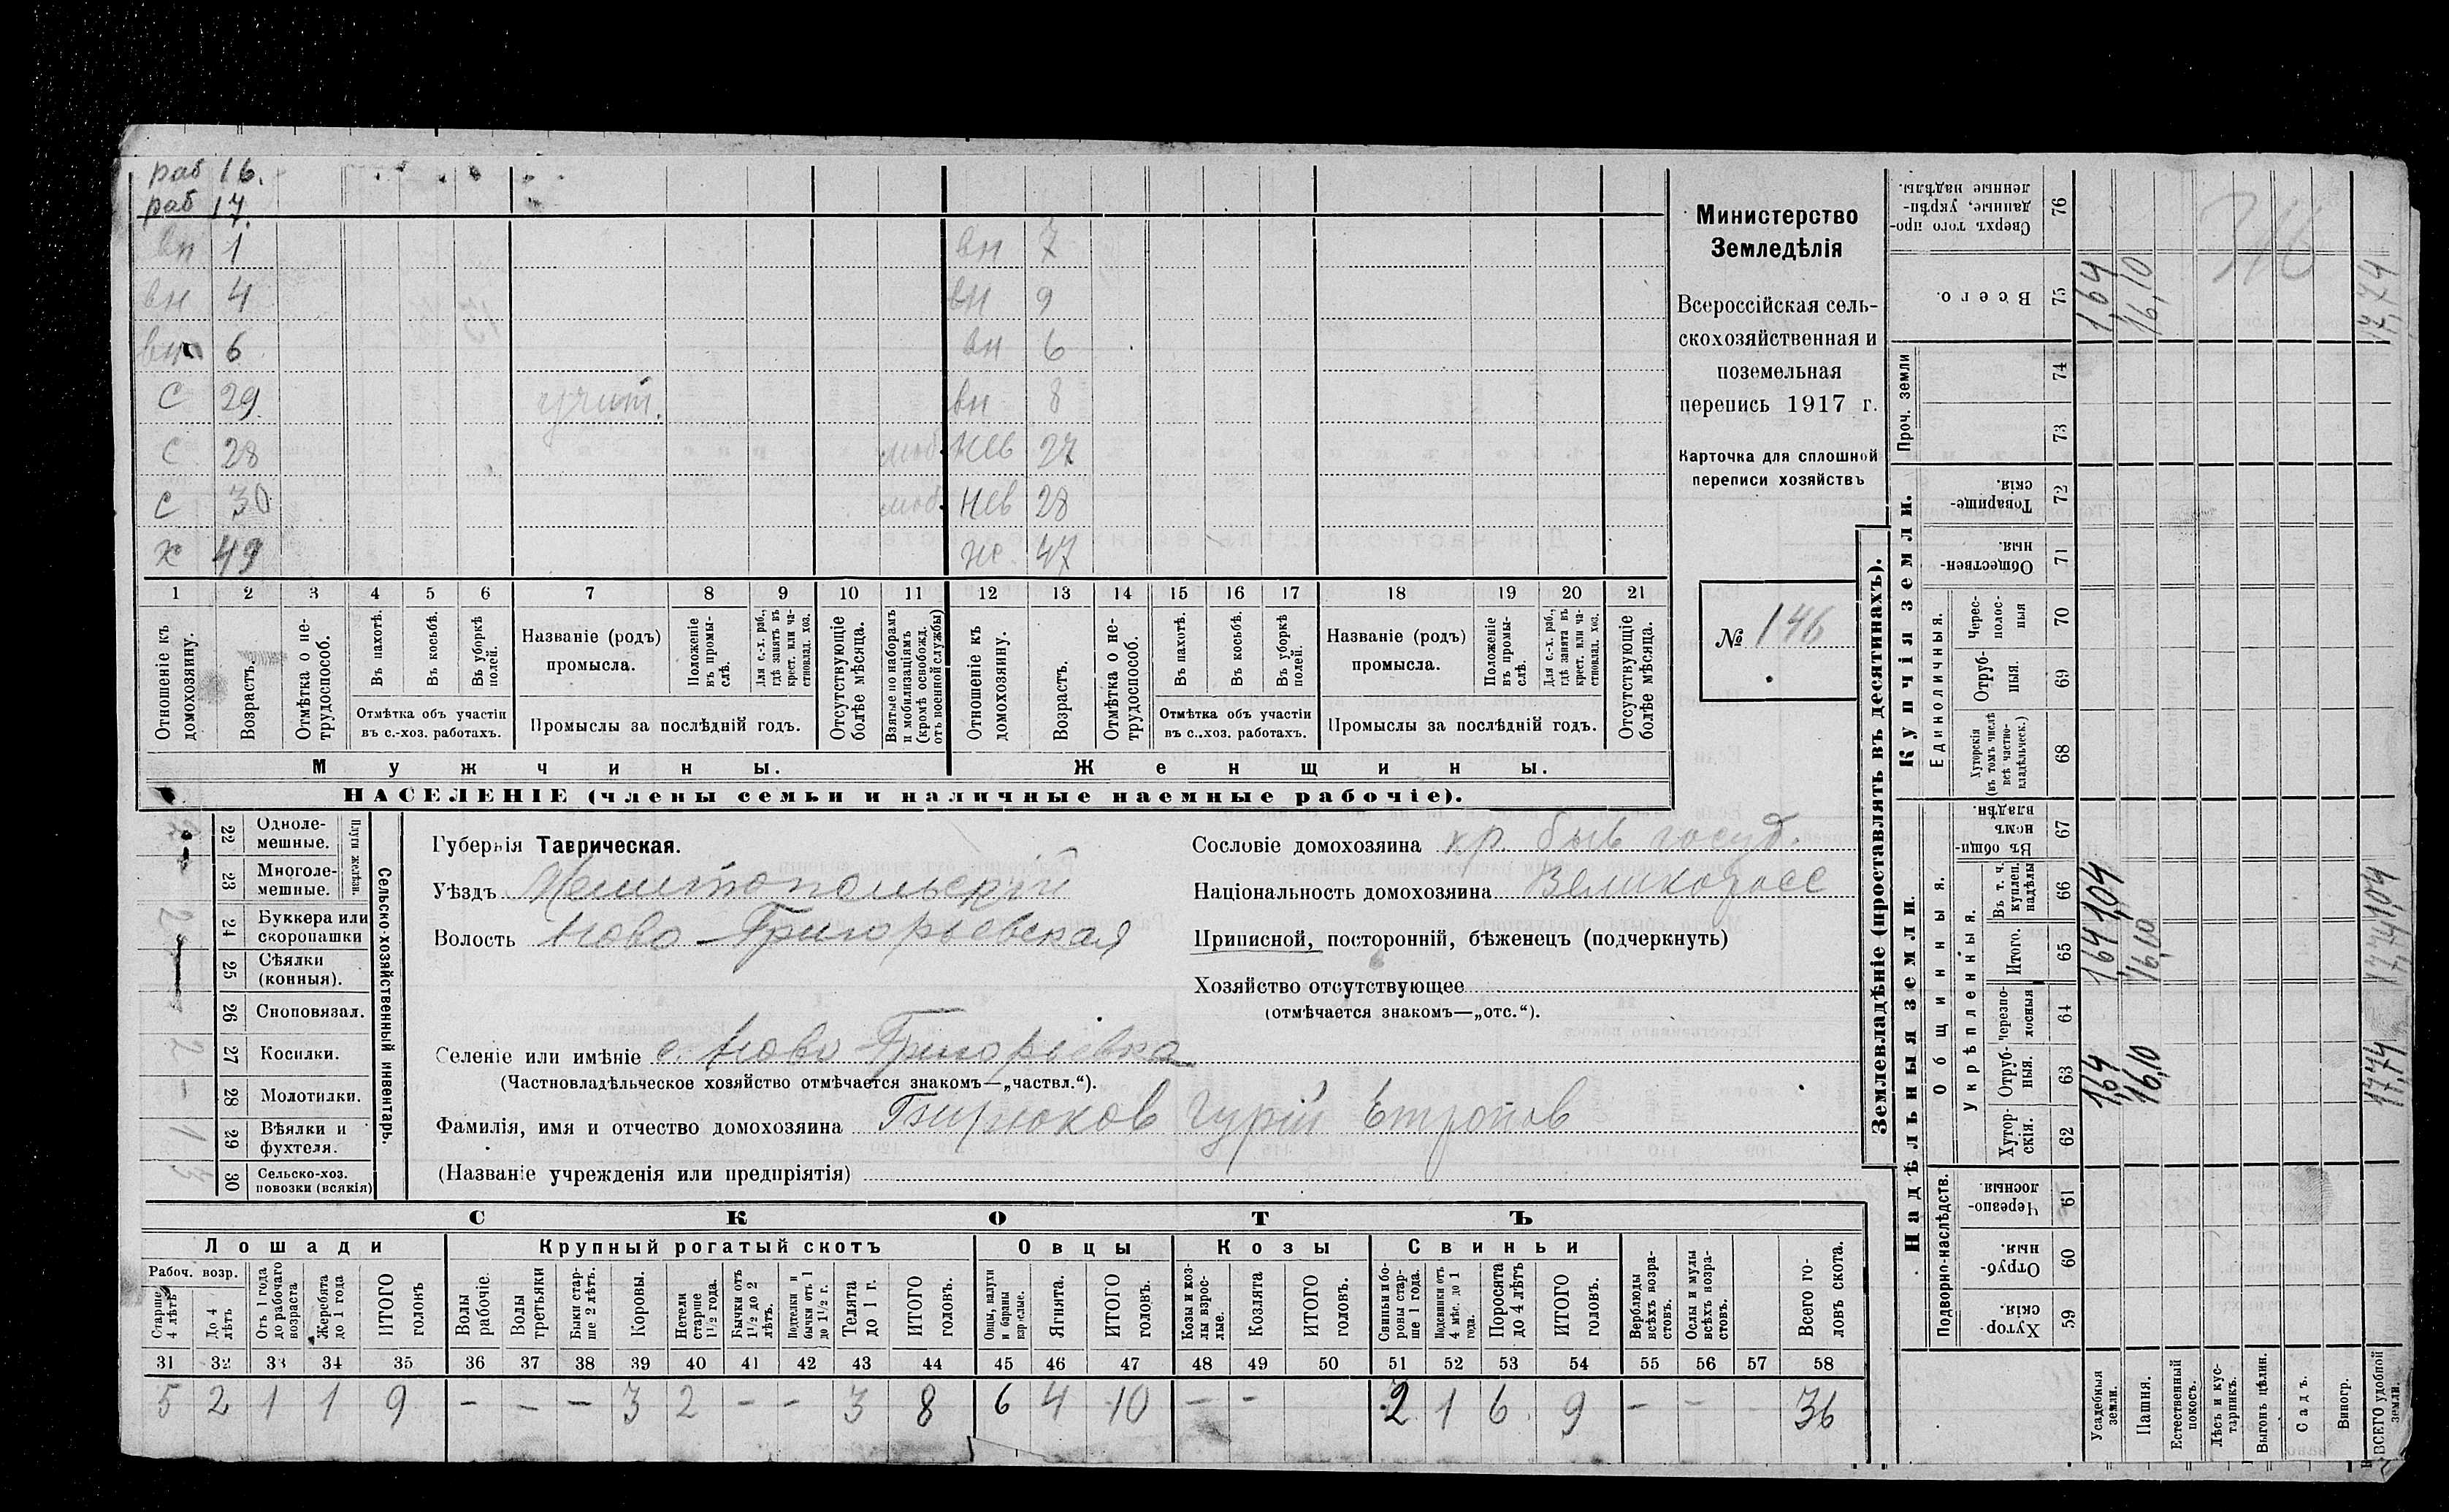 раб 16.
раб 17.
вн 1 вн 7
вн 4 вн 9
вн 6 вн 6
с 29 учит. вн 8
с 28 моб. нев 27
с 30 моб. нев 28
х 49 же. 47
1 2 3 4 5 6 7 8 9 10 11 12 13 14 15 16 17 18 19 20 21
Отношеніе къ домохозяину.
Возрастъ.
Отмѣтка о не-трудоспособ.
Въ пахотѣ.
Въ косьбѣ.
Въ уборкѣ полей.
Отмѣтка объ участіи
въ с.-хоз. работахъ.
Названіе (родъ)
промысла.
Положеніе въ промы-слѣ.
Для с.-х. раб., гдѣ занятъ въ крест. или ча-стновлад. хоз.
Промыслы за послѣдній годъ.
Отсутствующіе болѣе мѣсяца.
Взятые по наборамъ и мобилизаціямъ (кромѣ освобожд. отъ военной службы)
Отношеніе къ домохозяину.
Возрастъ.
Отмѣтка о не-трудоспособ.
Въ пахотѣ.
Въ косьбѣ.
Въ уборкѣ полей.
Отмѣтка объ участіи
въ с.-хоз. работахъ.
Названіе (родъ)
промысла.
Положеніе въ промы-слѣ.
Для с.-х. раб., гдѣ занята въ крест. или ча-стновлад. хоз.
Промыслы за послѣдній годъ.
Отсутствующіе болѣе мѣсяца.
Мужчины. Женщины.
НАСЕЛЕНІЕ (члены семьи и наличные наемные рабочіе).
Министерство
Земледѣлія
Всероссійская сель-
скохозяйственная и
поземельная
перепись 1917 г.
Карточка для сплошной
переписи хозяйствъ
№ 146
Сельско-хозяйственный инвентарь.
Плуги желѣзн.
22 Одноле-мешные.
23 Многоле-мешные.
24 Буккера или скоропашки 2
25 Сѣялки (конныя).
26 Сноповязал.
27 Косилки. 2
28 Молотилки. -
29 Вѣялки и фухтеля. 1
30 Сельско-хоз. повозки (всякія) 3
Губернія Таврическая.
Уѣздъ Мелитопольскій
Волость Ново-Григорьевская
Сословіе домохозяина кр. быв. госуд.
Національность домохозяина Великоросс
Приписной, посторонній, бѣженецъ (подчеркнуть)
Хозяйство отсутствующее
(отмѣчается знакомъ—„отс.“).
Селеніе или имѣніе с. Ново Григорьевка
(Частновладѣльческое хозяйство отмѣчается знакомъ—„частвл.“).
Фамилія, имя и отчество домохозяина Бирюков Гурій Етропов
(Названіе учрежденія или предпріятія)
СКОТЪ
Лошади Крупный рогатый скотъ Овцы Козы Свиньи
Рабоч. возр.
Старше 4 лѣтъ
До 4 лѣтъ
Отъ 1 года до рабочаго возраста
Жеребята до 1 года
ИТОГО головъ
Волы рабочіе.
Волы третьяки
Быки стар-ше 2 лѣтъ.
Коровы.
Нетели старше 1½ года.
Бычки отъ 1½ до 2 лѣтъ.
Подтелки и бычки отъ 1 до 1½ г.
Телята до 1 г.
ИТОГО головъ.
Овцы, валухи и бараны взрослые.
Ягнята.
ИТОГО головъ.
Козы и коз-лы взрос-лые.
Козлята
ИТОГО головъ.
Свиньи и бо-ровы стар-ше 1 года.
Подсвинки отъ 4 мѣс. до 1 года.
Поросята до 4 лѣтъ
ИТОГО головъ.
Верблюды всѣхъ возра-стовъ.
Ослы и мулы всѣхъ возра-стовъ.
Всего го-ловъ скота.
31 32 33 34 35 36 37 38 39 40 41 42 43 44 45 46 47 48 49 50 51 52 53 54 55 56 57 58
5 2 1 1 9 - - - 3 2 - - 3 8 6 4 10 - - 2 1 6 9 - - 36
Землевладѣніе (проставлять въ десятинахъ).
Надѣльныя земли. Купчія земли.
Подворно-наслѣдств.
Общинныя.
Укрѣпленныя.
Единоличныя.
Проч. земли
59 Хутор-скія
60 Отруб-ныя
61 Черезпо-лосныя.
62 Хутор-скія.
63 Отруб-ныя.
64 Черезпо-лосныя
65 Итого.
66 Въ т. ч. куплен. надѣлы
67 Въ общин-номъ владѣн.
68 Хуторскія (въ томъ числѣ всѣ частно-владѣльческ.)
69 Отруб-ныя.
70 Черес-полос-ныя
71 Обществен-ныя.
72 Товарище-скія.
73
74
75 Всего.
76 Сверхъ того про-данные, укрѣп-ленные надѣлы.
Усадебныя земли. 1,64 1,64 1,04 1,64
Пашня. 16,10 16,10 16,10
Естественный покосъ.
Лѣсъ и кус-тарникъ.
Выгонъ цѣлин.
Садъ.
Виногр.
ВСЕГО удобной земли. 17,74 17,74 1,04 17,74